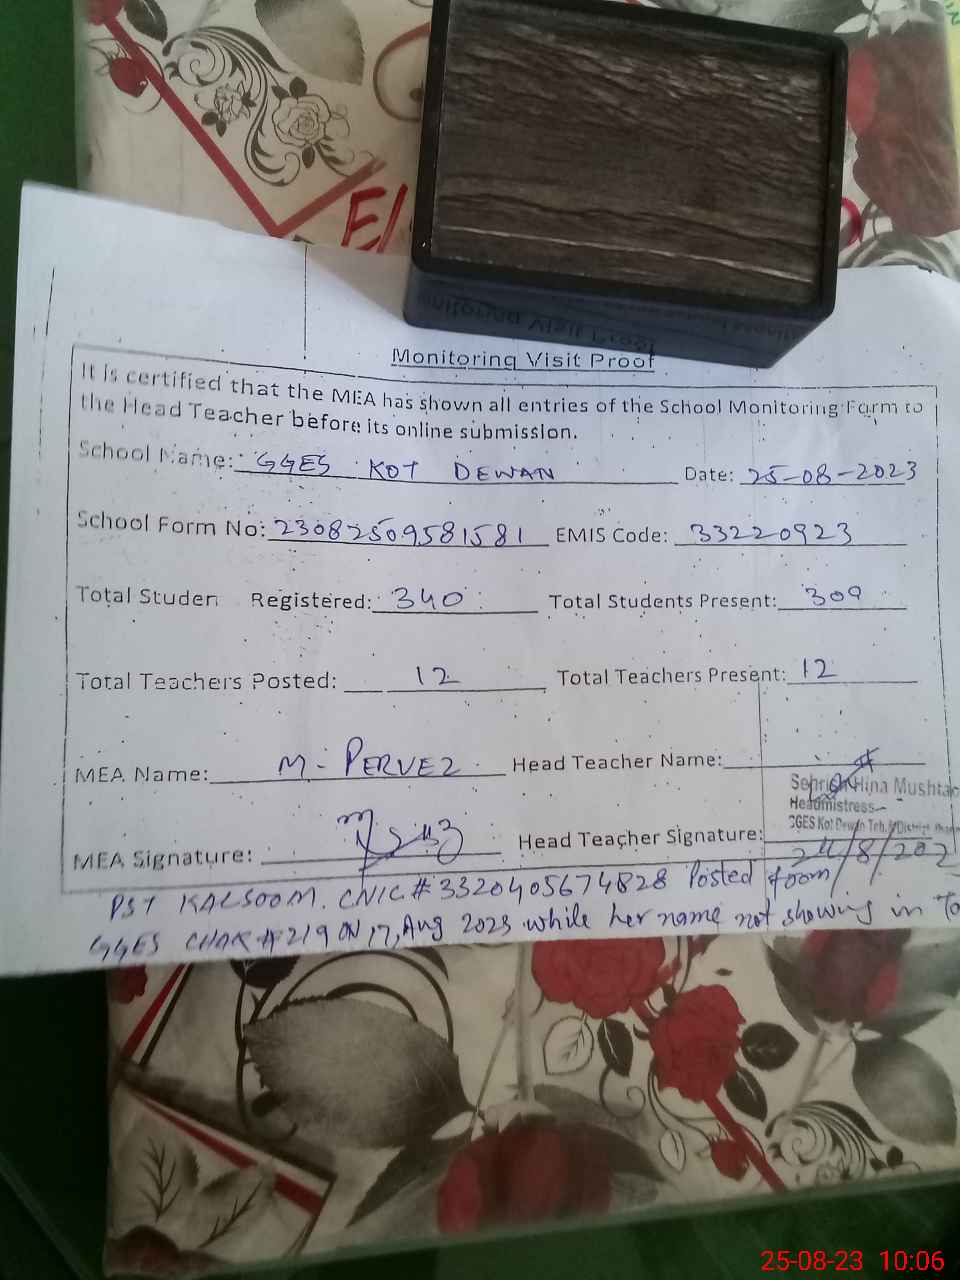 E/
Monitoring Visit Proof
It is certified that the MEA has shown all entries of the School Monitoring Form to
the Head Teacher before its online submission.
School Name: GGES KOT DEWAN Date: 25-08-2023
School Form No: 23082509581581 EMIS Code: 33220923
Total Studen Registered: 340 Total Students Present: 309
Total Teachers Posted: 12 Total Teachers Present: 12
MEA Name: M. PERVEZ Head Teacher Name:
Sehrish Hina Mushtaq
Headmistress
GGES Kot Dewan Teh. & District
MEA Signature: Head Teacher Signature:
24/8/202
PST KALSOOM. CNIC # 3320405674828 Posted from
GGES CHAK # 219 ON 17, Aug 2023 while her name not showing in To
25-08-23 10:06